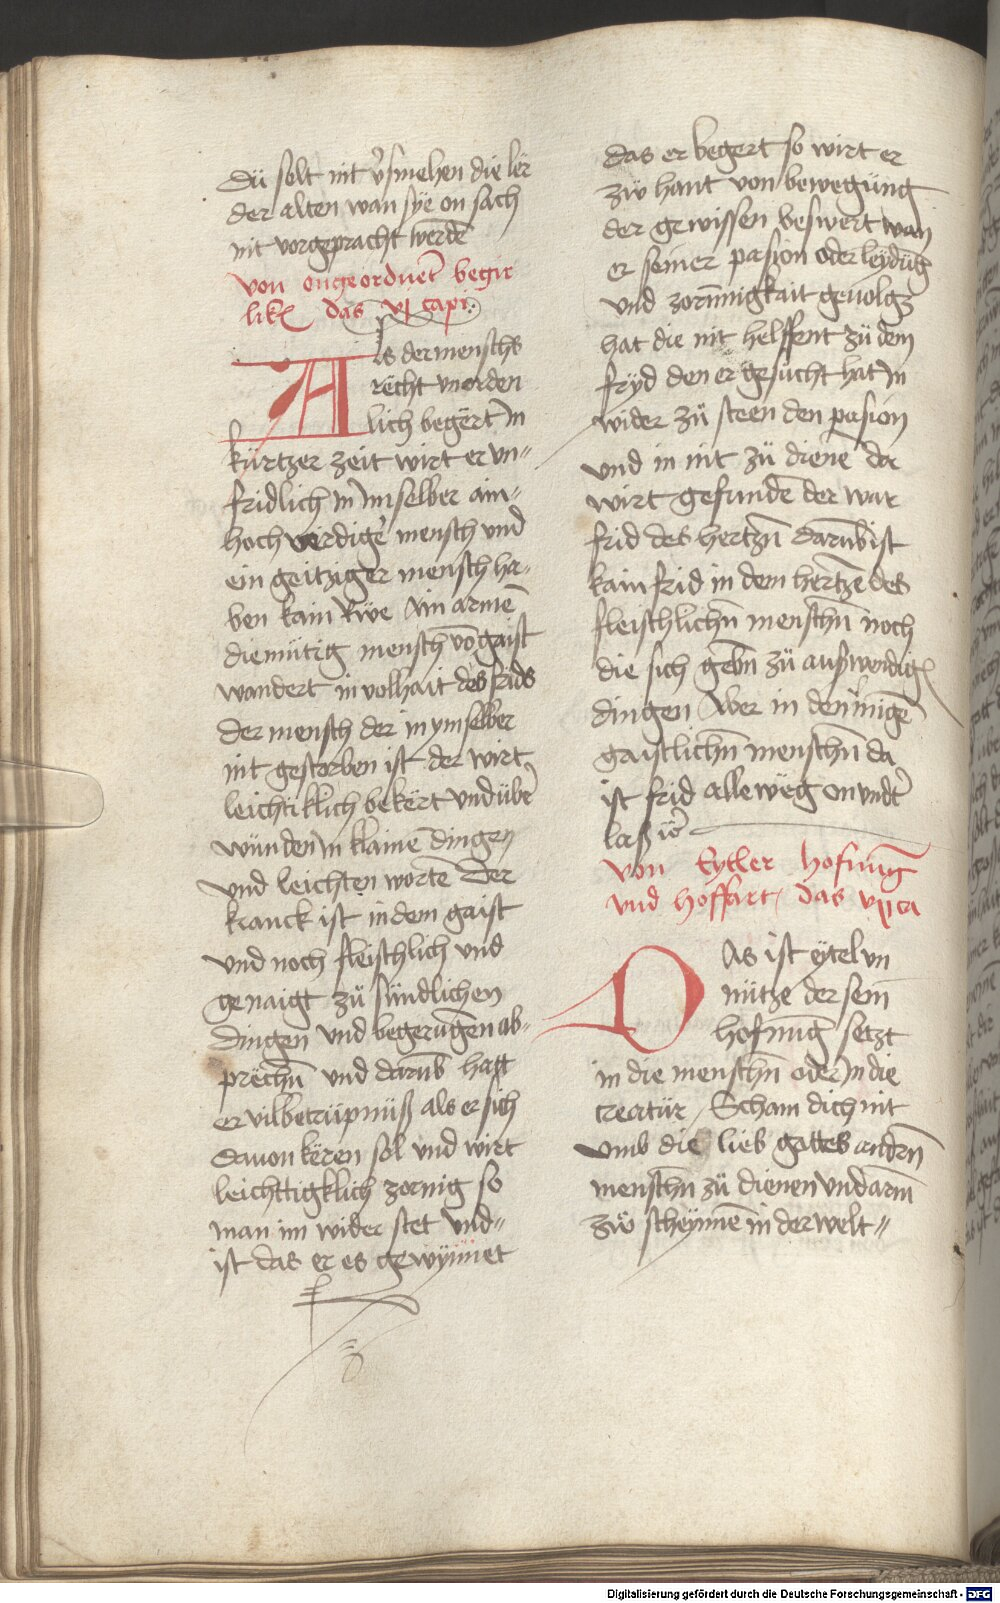 dü solt nit v̾smehen die ler
der alten wan sÿe on sach
nit vorgepracht werdē
von ongeordnet̾ begir
likꝭ das vj capi
Als der menschs
recht vnorden
lich begert in
kürtzer zeit wirt er vn〃
fridlich in im selber ain〃
hochverdig̾ mensch und
ein geitziger mensch ha〃
ben kain Rwe Ain armē
diemütig mensch vō gaist
wandert in volhait des frids
der mensch der in ym selber
nit gestorben ist der wirt
leichtiklich bekert und über
wünden in klainē dingen
und leichten wortē Der
kranck ist in dem gaist
und noch fleischlich und
genaigt zü sündlichen
dingen und begerūgen ab〃
prechn̄ und darūb hatt
er vil betrüpnüß als er sich
davon keren sol und wirt
leichttigklich zornig so
man im wider stet und〃
ist das er es gewÿnnet
das er begert so wirt er
zw hant von bewegüng
der gewissen beswert wan
er seiner pasion oder leydūg
und zornnigkait gevolgz
hat die nit helffent zü dem
fryd den er gesucht hat in
wider zü steen den pasion
und in nit zü dienē da
wirt gefundē der war
frid des hertzn̄ darūb ist
kain frid in dem hertzē des
fleischlichn̄ menschn̄ noch
die sich gebn̄ zü außwendigꝭ
dingen Aber in den īnigē
gaistlichn̄ menschn̄ da
ist frid alleweg on vndt̾
laß ꝛc̄
von Eytler hofnūg
und hoffart das vij ca
Das ist eytel vn
nütze der sein
hofnūg setzt
in die menschn̄ oder in die
creatür Scham dich nit
umb die lieb gottes andrn̄
menschn̄ zü dienen und arm
zw scheynnē in der welt〃
Digitalisierung gefördert durch die Deutsche Forschungsgemeinschaft - DFG